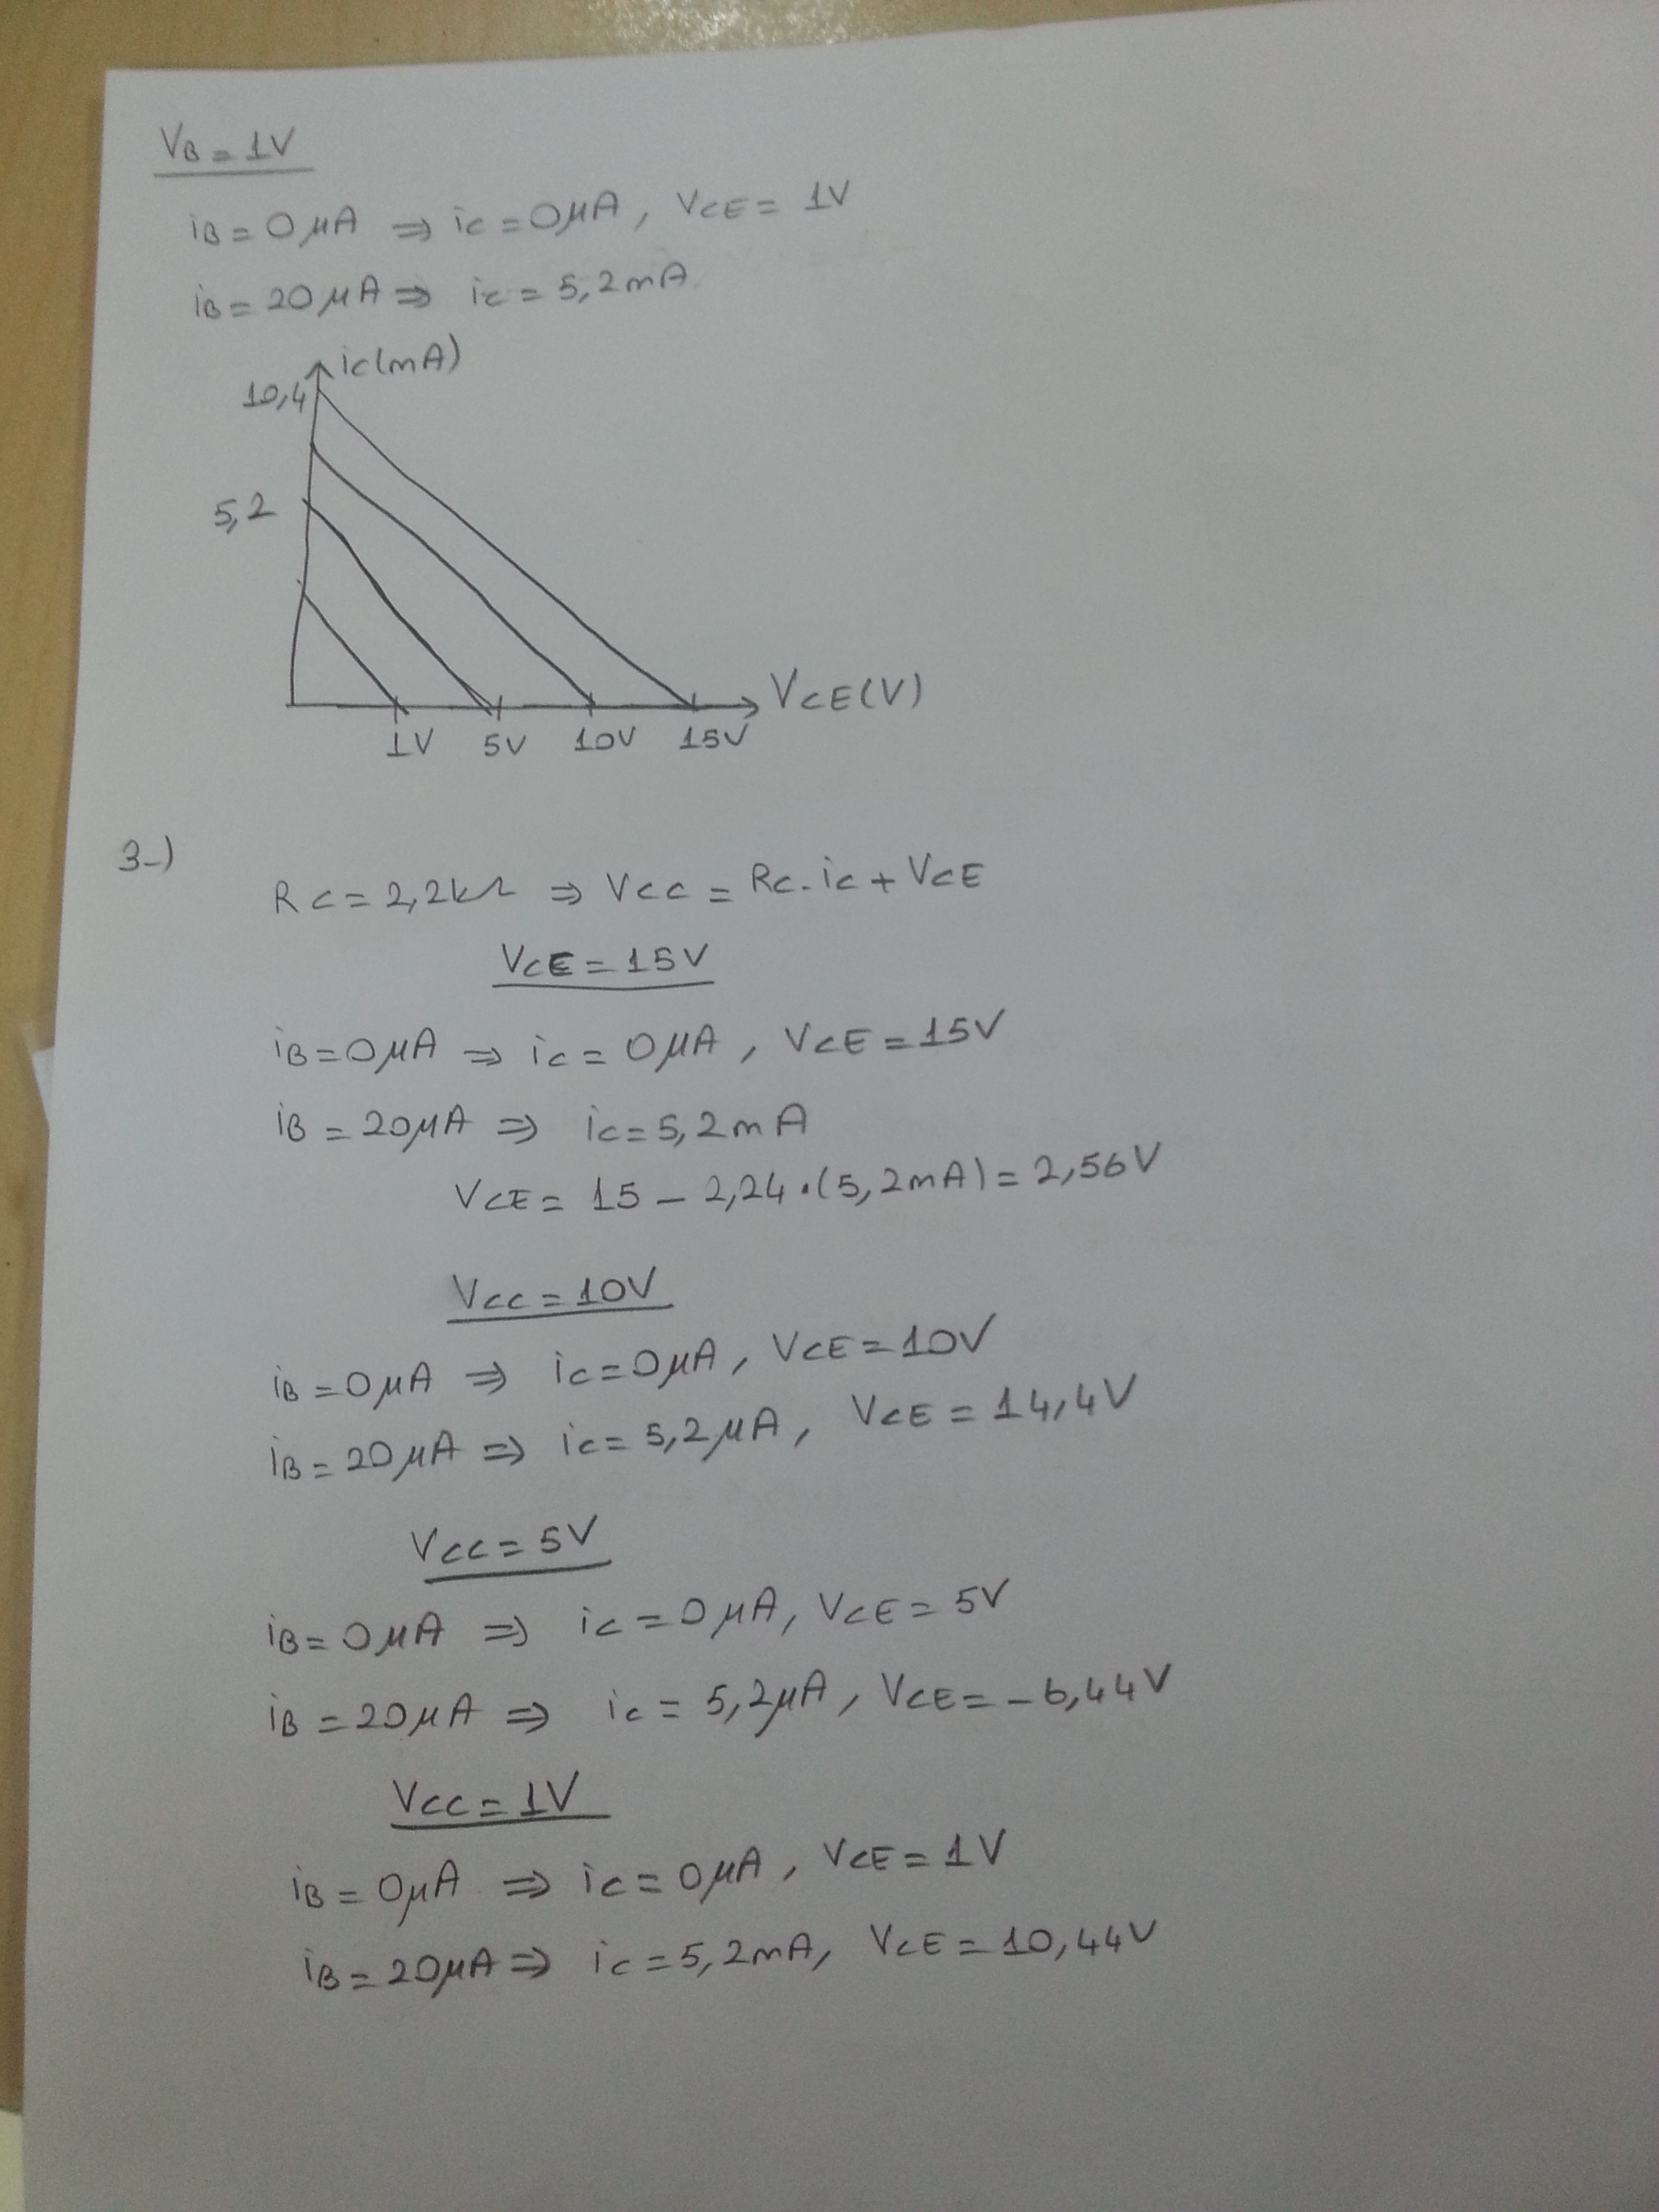 VB = 1V
iB = 0 µA ⇒ ic = 0 µA, VCE = 1V
iB = 20 µA ⇒ ic = 5,2 mA
ic (mA)
10,4
5,2
VCE (V)
1V 5V 10V 15V
3-)
RC = 2,2kΩ ⇒ VCC = RC . ic + VCE
VCE = 15V
iB = 0 µA ⇒ ic = 0 µA, VCE = 15V
iB = 20 µA ⇒ ic = 5,2 mA
VCE = 15 - 2,24 . (5,2mA) = 2,56V
VCC = 10V
iB = 0 µA ⇒ ic = 0 µA, VCE = 10V
iB = 20 µA ⇒ ic = 5,2 µA, VCE = 14,4V
VCC = 5V
iB = 0 µA ⇒ ic = 0 µA, VCE = 5V
iB = 20 µA ⇒ ic = 5,2 µA, VCE = -6,44V
VCC = 1V
iB = 0 µA ⇒ ic = 0 µA, VCE = 1V
iB = 20 µA ⇒ ic = 5,2 mA, VCE = 10,44V